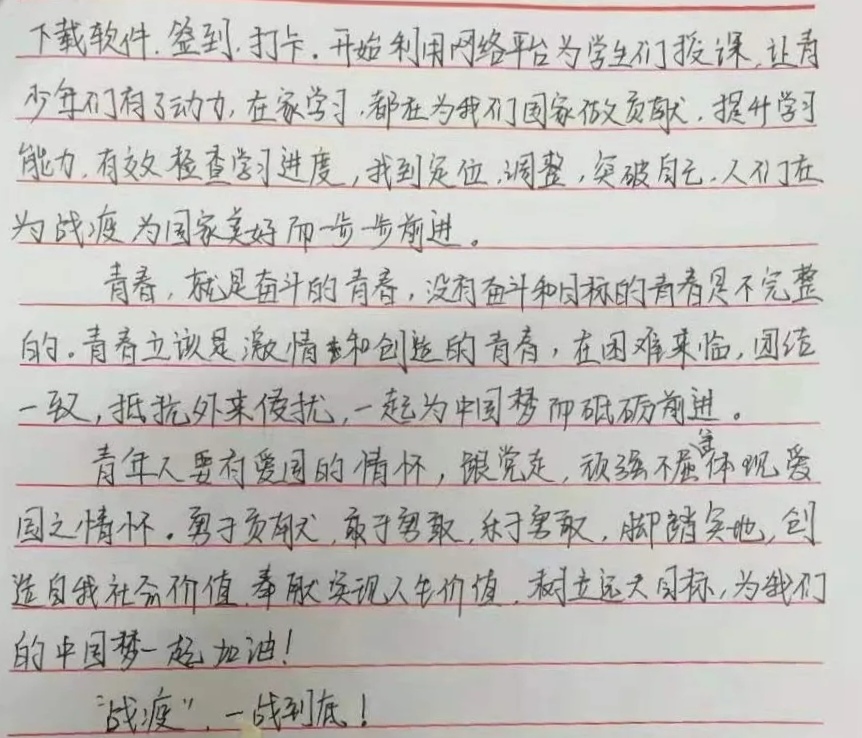 下载软件.签到.打卡.开始利用网络平台为学生们授课,让青
少年们有了动力,在家学习,都在为我们国家做贡献.提升学习
能力.有效检查学习进度,找到定位,调整,突破自己.人们在
为战疫为国家美好而一步一步前进。
青春,就是奋斗的青春,没有奋斗和目标的青春是不完整
的。青春应该是激情和创造的青春,在困难来临,团结
一致,抵抗外来侵扰,一起为中国梦而砥砺前进。
青年人要有爱国的情怀,跟党走,顽强不屈,体现爱
国之情怀。勇于贡献,敢于勇敢,乐于勇敢,脚踏实地,创
造自我社会价值,奉献实现人生价值.树立远大目标,为我们
的中国梦一起加油!
“战疫”,一战到底!